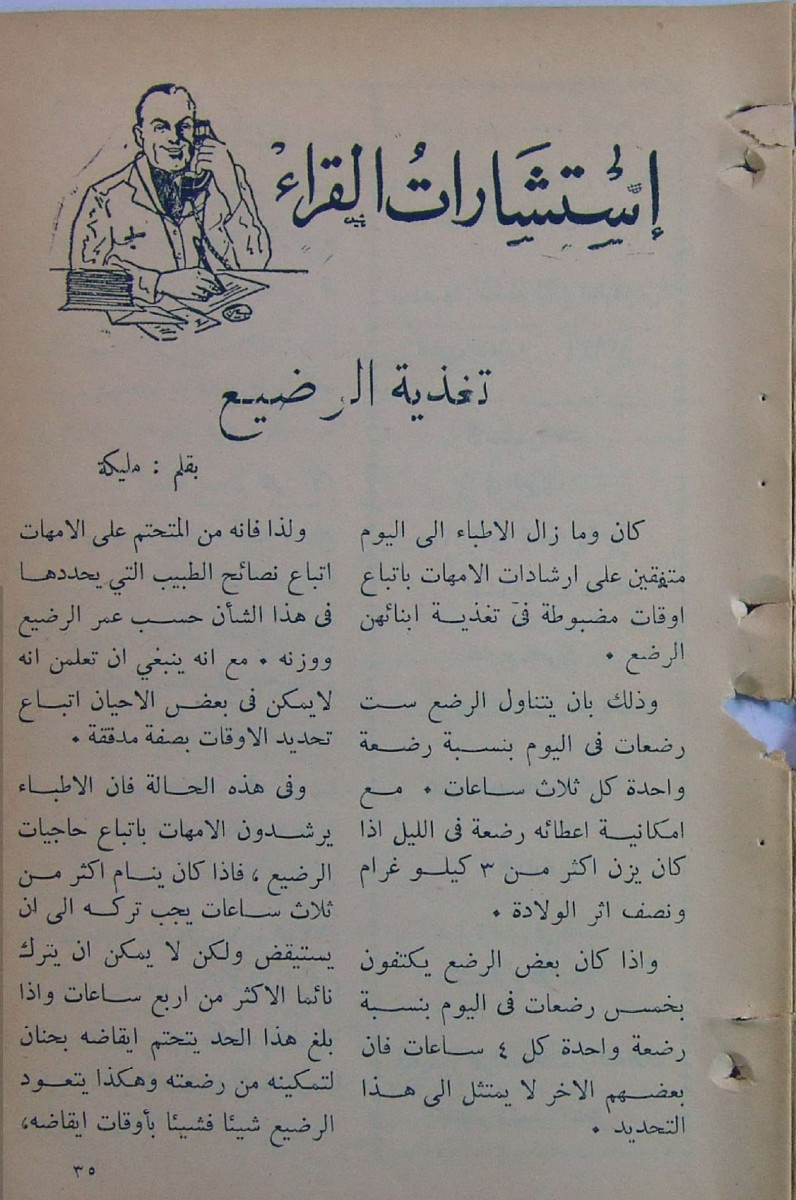 إسْتشَاراتُ القراءْ
تغذية الرضيع
بقلم : مليكة
كان وما زال الاطباء الى اليوم
متفقين على ارشادات الامهات باتباع
اوقات مضبوطة في تغذية ابنائهن
الرضع .
وذلك بان يتناول الرضع ست
رضعات في اليوم بنسبة رضعة
واحدة كل ثلاث ساعات . مع
امكانية اعطائه رضعة في الليل اذا
كان يزن اكثر من ٣ كيلو غرام
ونصف اثر الولادة .
واذا كان بعض الرضع يكتفون
بخمس رضعات في اليوم بنسبة
رضعة واحدة كل ٤ ساعات فان
بعضهم الاخر لا يمتثل الى هذا
التحديد .
ولذا فانه من المتحتم على الامهات
اتباع نصائح الطبيب التي يحددها
في هذا الشأن حسب عمر الرضيع
ووزنه . مع انه ينبغي ان تعلمن انه
لايمكن في بعض الاحيان اتباع
تحديد الاوقات بصفة مدققة .
وفي هذه الحالة فان الاطباء
يرشدون الامهات باتباع حاجيات
الرضيع ، فاذا كان ينام اكثر من
ثلاث ساعات يجب تركه الى ان
يستيقض ولكن لا يمكن ان يترك
نائما الاكثر من اربع ساعات واذا
بلغ هذا الحد يتحتم ايقاضه بحنان
لتمكينه من رضعته وهكذا يتعود
الرضيع شيئا فشيئا بأوقات ايقاضه،
٣٥